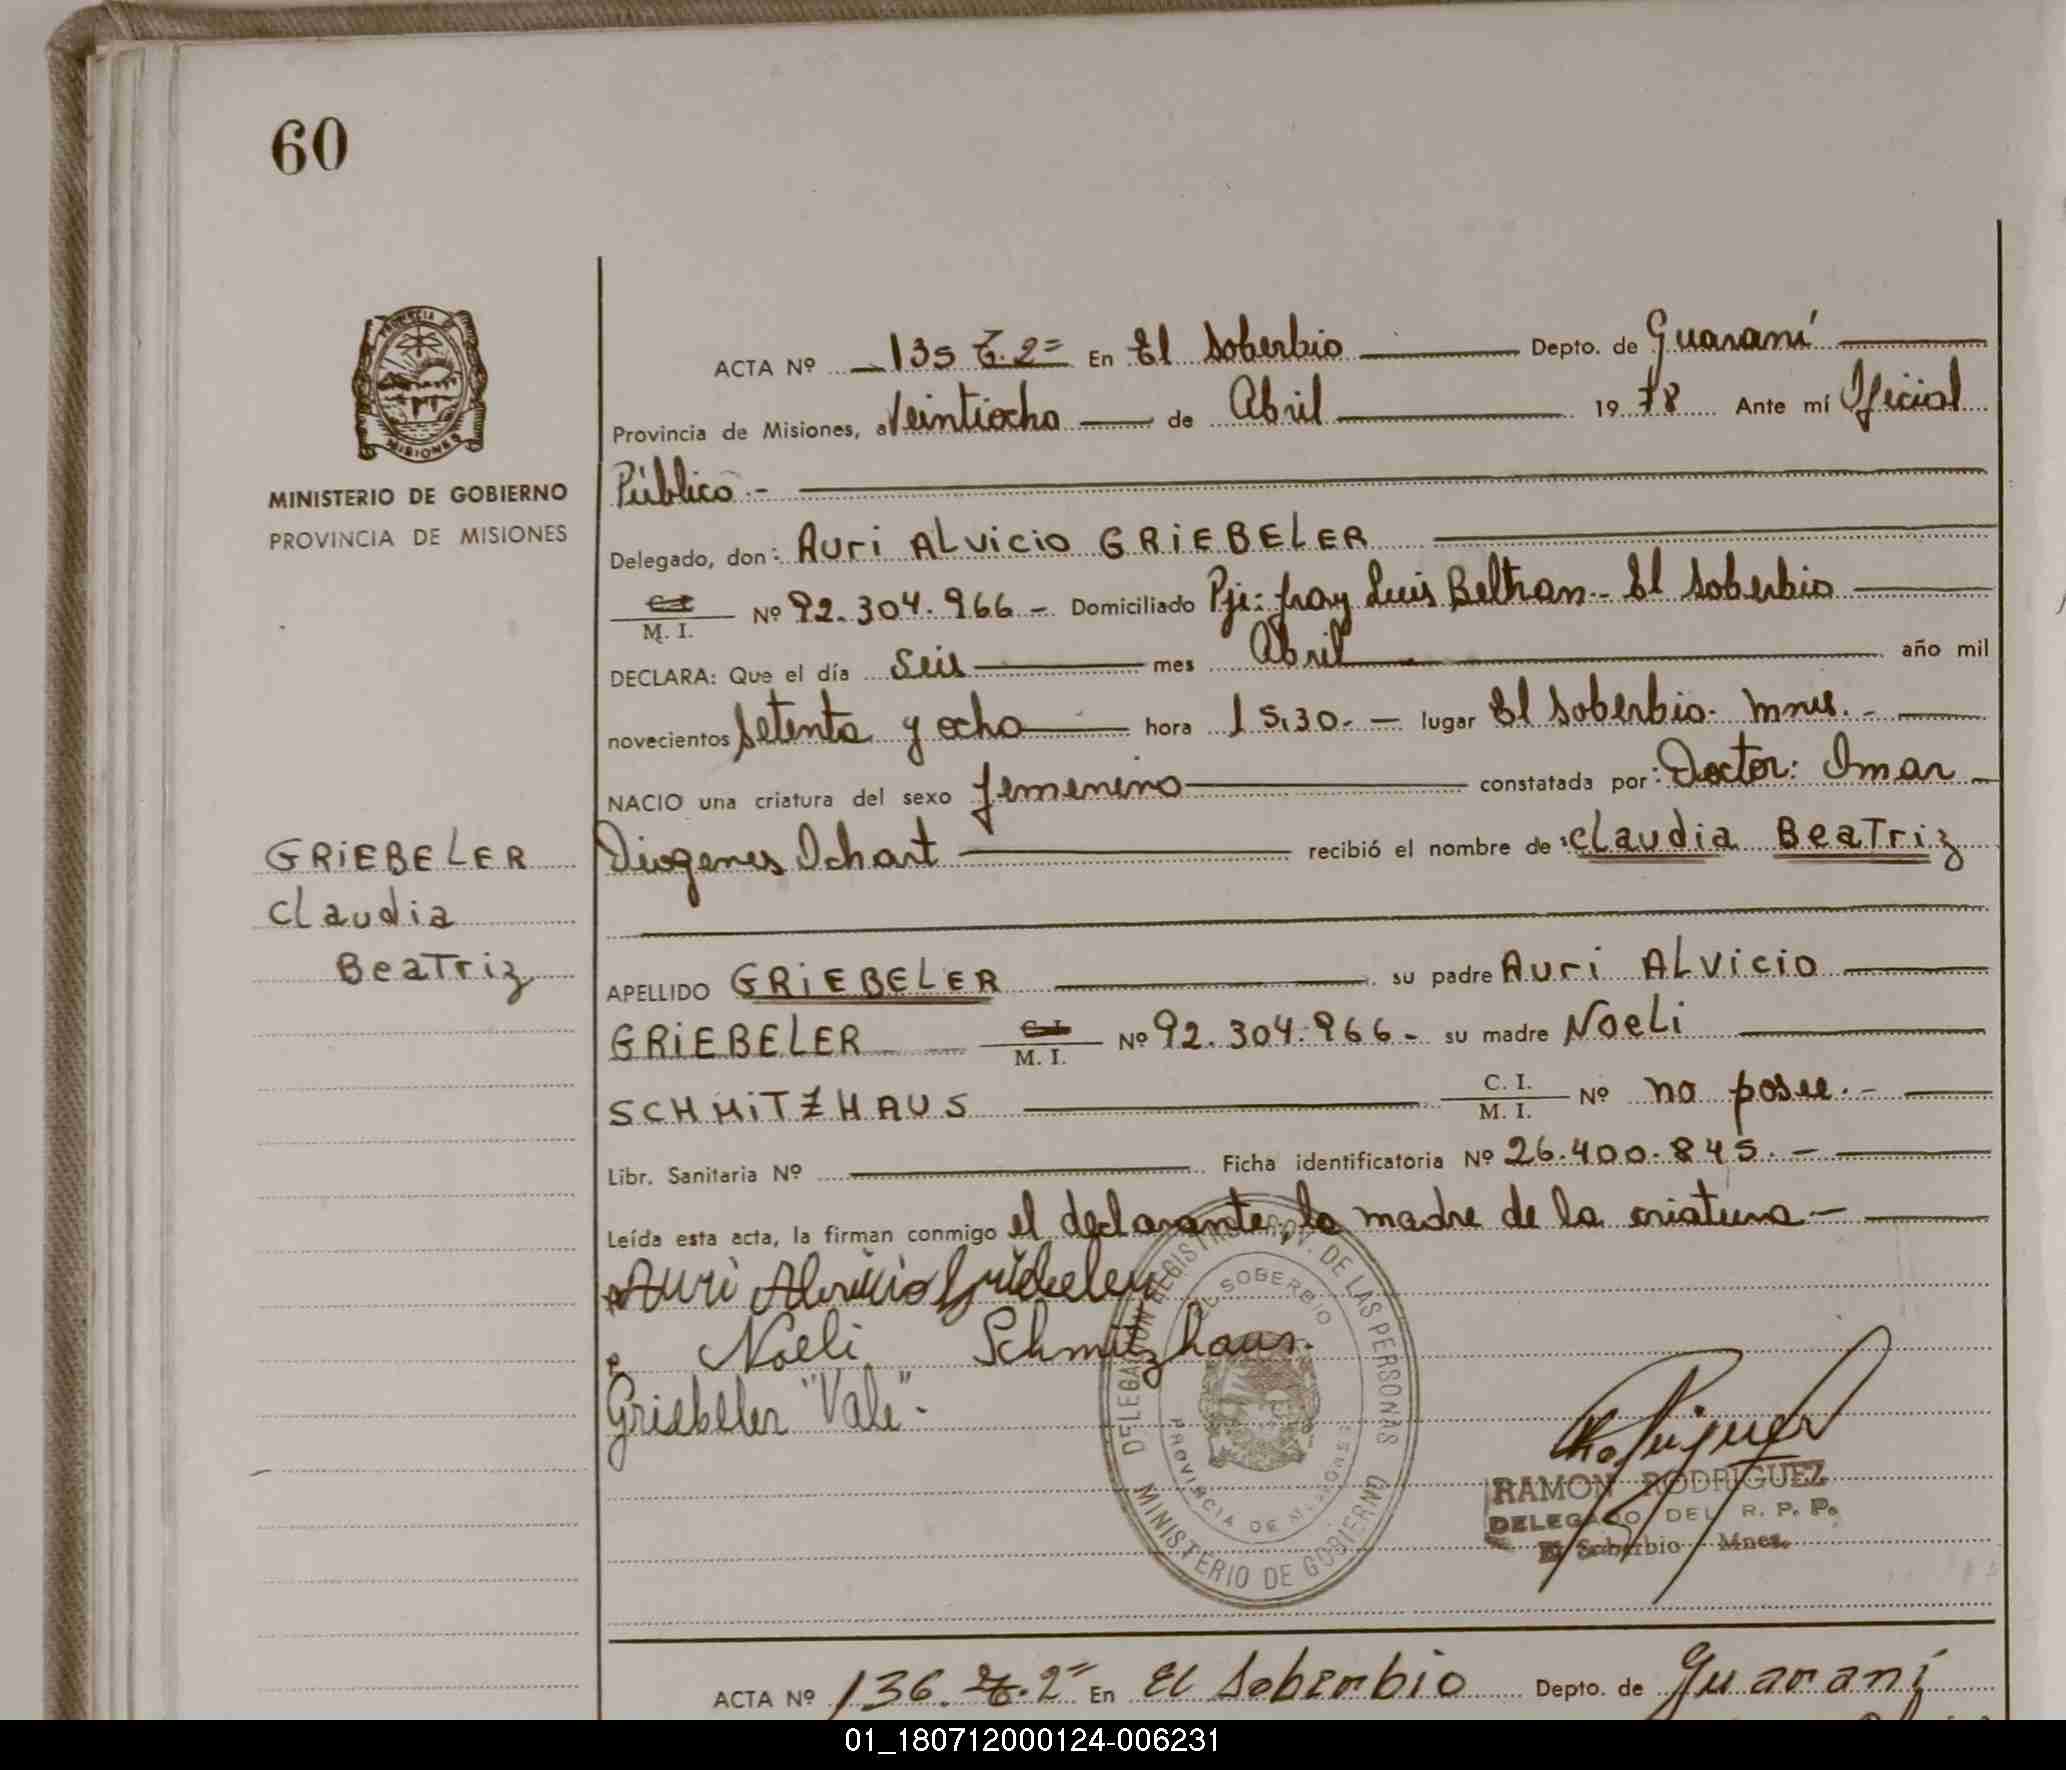 60
PROVINCIA DE
MISIONES
MINISTERIO DE GOBIERNO
PROVINCIA DE MISIONES
ACTA Nº 135 T. 2º En El Soberbio Depto. de Guaraní
Provincia de Misiones, a Veintiocho de Abril 1978 Ante mí Oficial
Público.-
Delegado, don: Auri ALvicio GRiEBELER
C. I. / M. I. Nº 92.304.966 - Domiciliado Pje: fray Luis Beltran - El Soberbio
DECLARA: Que el día Seis mes Abril año mil
novecientos setenta y ocho hora 15,30.- lugar El Soberbio. Mnes.-
NACIO una criatura del sexo femenino constatada por: Doctor: Omar
Diogenes Ichart recibió el nombre de: Claudia BeaTriz
GRiEBELER
Claudia
BeaTriz
APELLIDO GRiEBELER su padre Auri ALvicio
GRiEBELER C. I. / M. I. Nº 92.304.966.- su madre NoeLi
SCHMiTZHAUS C. I. / M. I. Nº no posee.-
Libr. Sanitaria Nº Ficha identificatoria Nº 26.400.845.-
Leída esta acta, la firman conmigo el declarante, la madre de la criatura-
Auri Alvicio Griebeler
Noeli Schmitzhaus.
Griebeler "Vale".-
DELEGACION REGISTRO PROV. DE LAS PERSONAS
EL SOBERBIO
PROVINCIA DE MISIONES
MINISTERIO DE GOBIERNO
RAMON RODRIGUEZ
DELEGADO DEL R. P. P.
El Soberbio - Mnes.
ACTA Nº 136. T. 2º En El Soberbio Depto. de Guaraní
01_180712000124-006231